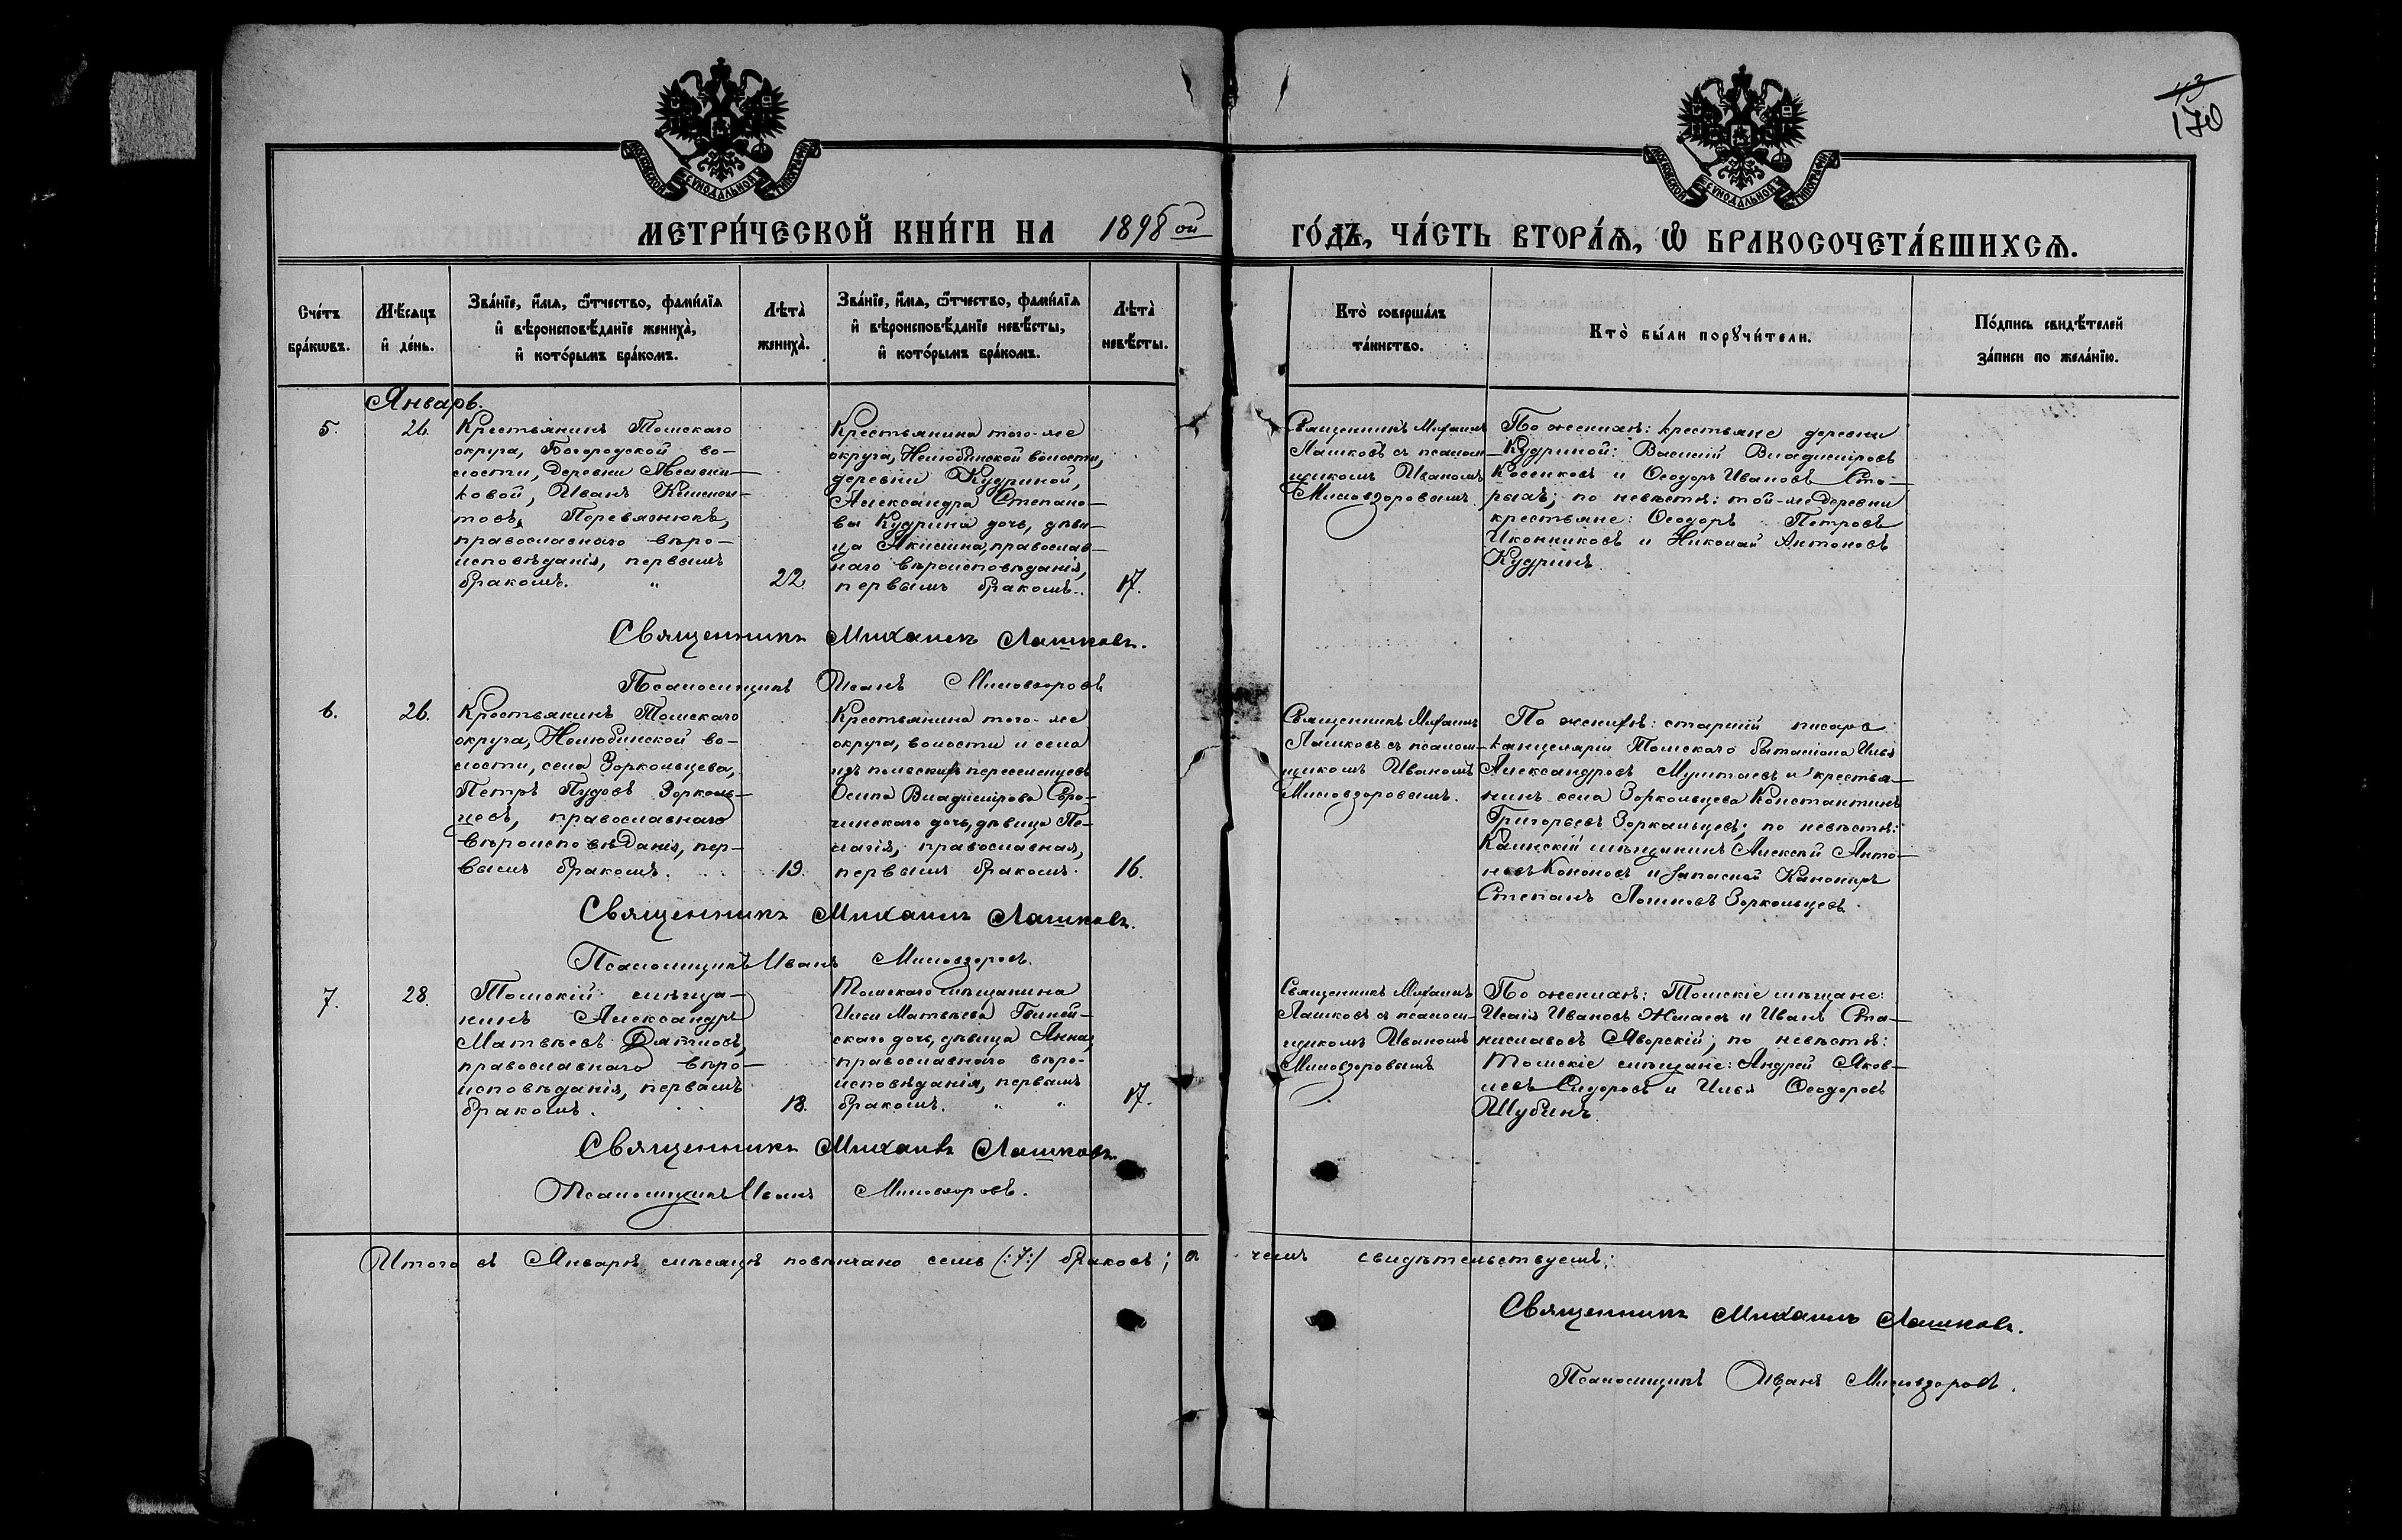 43
170
МОСКОВСКОЙ СѴНОДАЛЬНОЙ ТИПОГРАФІИ
МОСКОВСКОЙ СѴНОДАЛЬНОЙ ТИПОГРАФІИ
МЕТРИ́ЧЕСКОЙ КНИ́ГИ НА 1898 ой
ГО́ДЪ, ЧА́СТЬ ВТОРА́Ѧ, Ѡ БРАКОСОЧЕТА́ВШИХСѦ.
Сче́тъ
бра́кѡвъ.
Мѣ́сяцъ
и҆ де́нь.
Зва́нїе, и҆́мѧ, ѻ҆́тчество, фами́лїѧ
и҆ вѣроисповѣ́данїе жениха̀,
и҆ кото́рымъ бра́комъ.
Лѣта̀
жениха̀.
Зва́нїе, и҆́мѧ, ѻ҆́тчество, фами́лїѧ
и҆ вѣроисповѣ́данїе невѣ́сты,
и҆ кото́рымъ бра́комъ.
Лѣта̀
невѣ́сты.
Кто̀ соверша́лъ
та́инство.
Кто̀ бы́ли порꙋчи́тели.
По́дпись свидѣ́телей
за́писи по жела́нїю.
Январь.
5.
26.
Крестьянинъ Томскаго
округа, Богородской во-
лости, деревни
ковой, Иванъ Климен-
товъ Перевязнюкъ,
православнаго вѣро-
исповѣданія, первымъ
бракомъ.
22.
Крестьянина того-же
округа, Нелюбинской волости,
деревни Кудриной,
Александра Степано-
ва Кудрина дочь, дѣви-
ца Акилина, православ-
наго вѣроисповѣданія,
первымъ бракомъ.
17.
Священникъ Михаилъ
Лашковъ съ псалом-
щикомъ Иваномъ
Миловзоровымъ.
По женихѣ: крестьяне деревни
Кудриной: Василій Владиміровъ
Косенковъ и Ѳеодоръ Ивановъ Ста-
рыхъ; по невѣстѣ: той-же деревни
крестьяне: Ѳеодоръ Петровъ
Иконниковъ и Николай Антоновъ
Кудринъ.
Священникъ Михаилъ Лашковъ.
Псаломщикъ Иванъ Миловзоровъ
6.
26.
Крестьянинъ Томскаго
округа, Нелюбинской во-
лости, села Зоркольцева,
Петръ Пудовъ Зорколь-
цевъ, православнаго
вѣроисповѣданія, пер-
вымъ бракомъ.
19.
Крестьянина того-же
округа, волости и села
изъ польскихъ переселенцевъ
Осипа Владимірова
чинскаго дочь, дѣвица Пе-
лагія, православная,
первымъ бракомъ.
16.
Священникъ Михаилъ
Лашковъ съ псалом-
щикомъ Иваномъ
Миловзоровымъ.
По женихѣ: старшій писарь
канцеляріи Томскаго баталіона Илья
Александровъ Муштаевъ и крестья-
нинъ села Зоркольцева Константинъ
Григорьевъ Зоркальцевъ; по невѣстѣ:
Каинскій мѣщанинъ Алексѣй Анто-
новъ Кононовъ и запасной Канониръ
Степанъ Зоркольцевъ.
Священникъ Михаилъ Лашковъ.
Псаломщикъ Иванъ Миловзоровъ.
7.
28.
Томскій мѣща-
нинъ Александръ
Матвѣевъ Дятловъ,
православнаго вѣро-
исповѣданія, первымъ
бракомъ.
18.
Томскаго мѣщанина
Ильи Матвѣева
скаго дочь, дѣвица Анна,
православнаго вѣро-
исповѣданія, первымъ
бракомъ.
17.
Священникъ Михаилъ
Лашковъ съ псалом-
щикомъ Иваномъ
Миловзоровымъ
По женихѣ: Томскіе мѣщане:
Исаія Ивановъ Жмаевъ и Иванъ Ста-
ниславовъ Яворскій; по невѣстѣ:
Томскіе мѣщане: Андрей Яков-
левъ Сидоровъ и Илья Ѳеодоровъ
Шубинъ.
Священникъ Михаилъ Лашковъ.
Псаломщикъ Иванъ Миловзоровъ.
Итого въ Январѣ мѣсяцѣ повѣнчано семь (:7:) браковъ; о чемъ свидѣтельствуемъ:
Священникъ Михаилъ Лашковъ.
Псаломщикъ Иванъ Миловзоровъ.